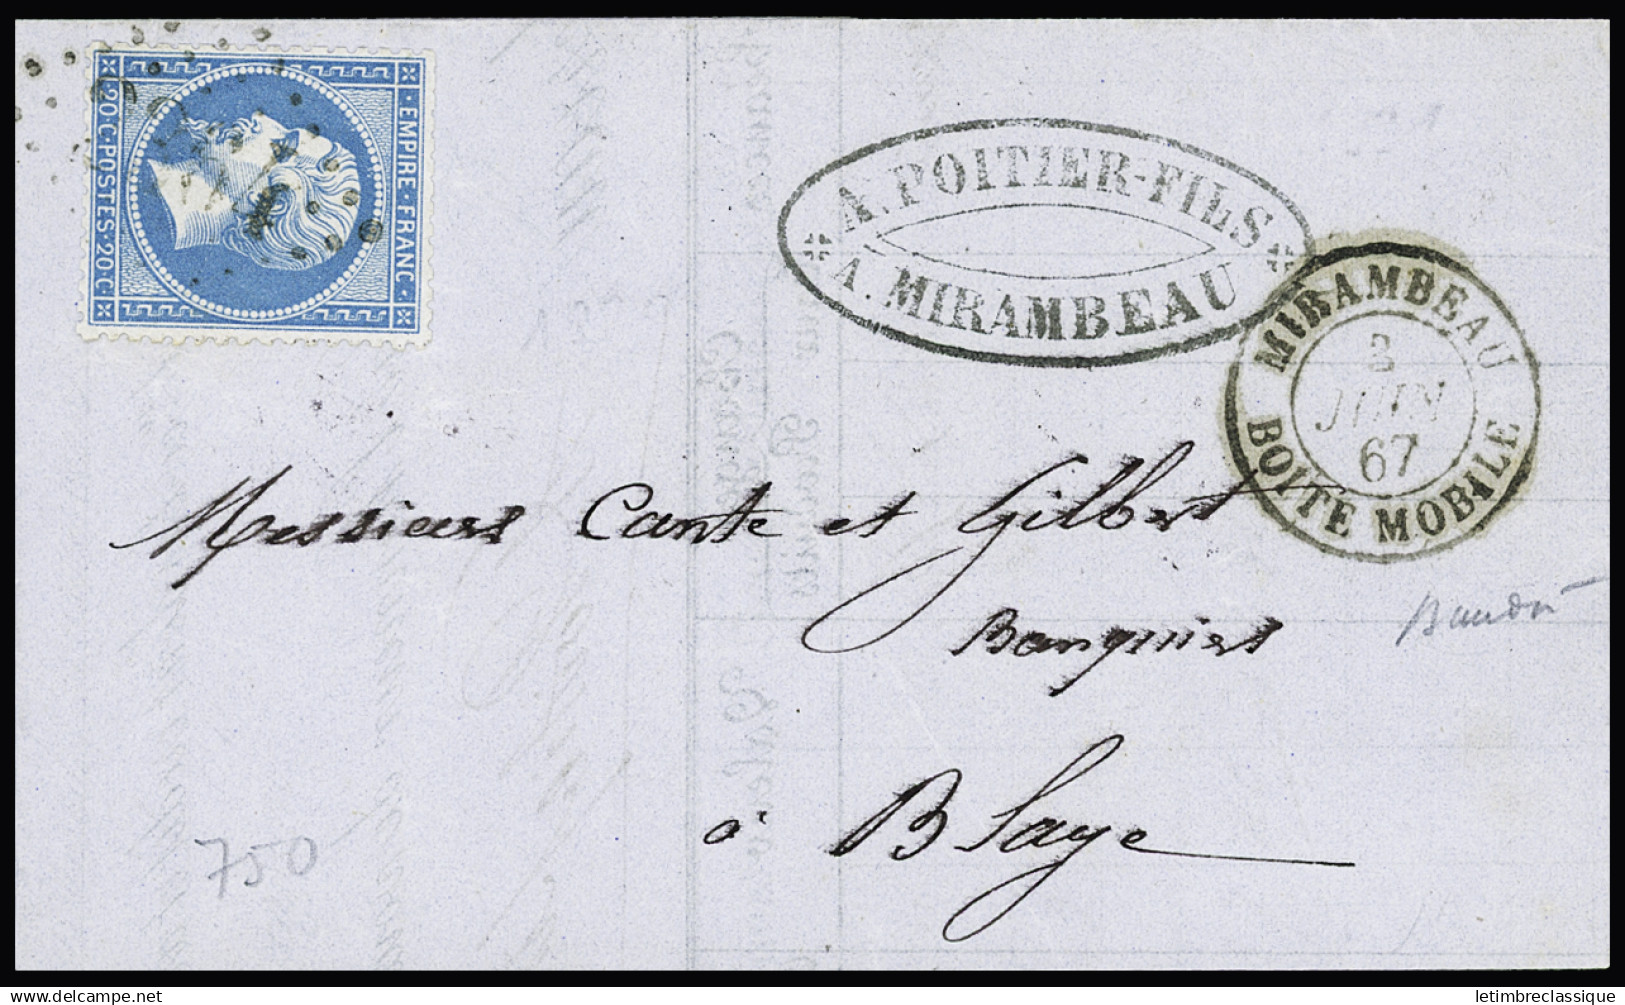 EMPIRE · FRANC ·
· 20 · C · POSTES · 20 · C ·
A. POITIER-FILS
A. MIRAMBEAU
MIRAMBEAU
3
JUIN
67
BOITE MOBILE
Messieurs Cante et Gilbert
Banquiers
à Blaye
750
delcampe.net
letimbreclassique